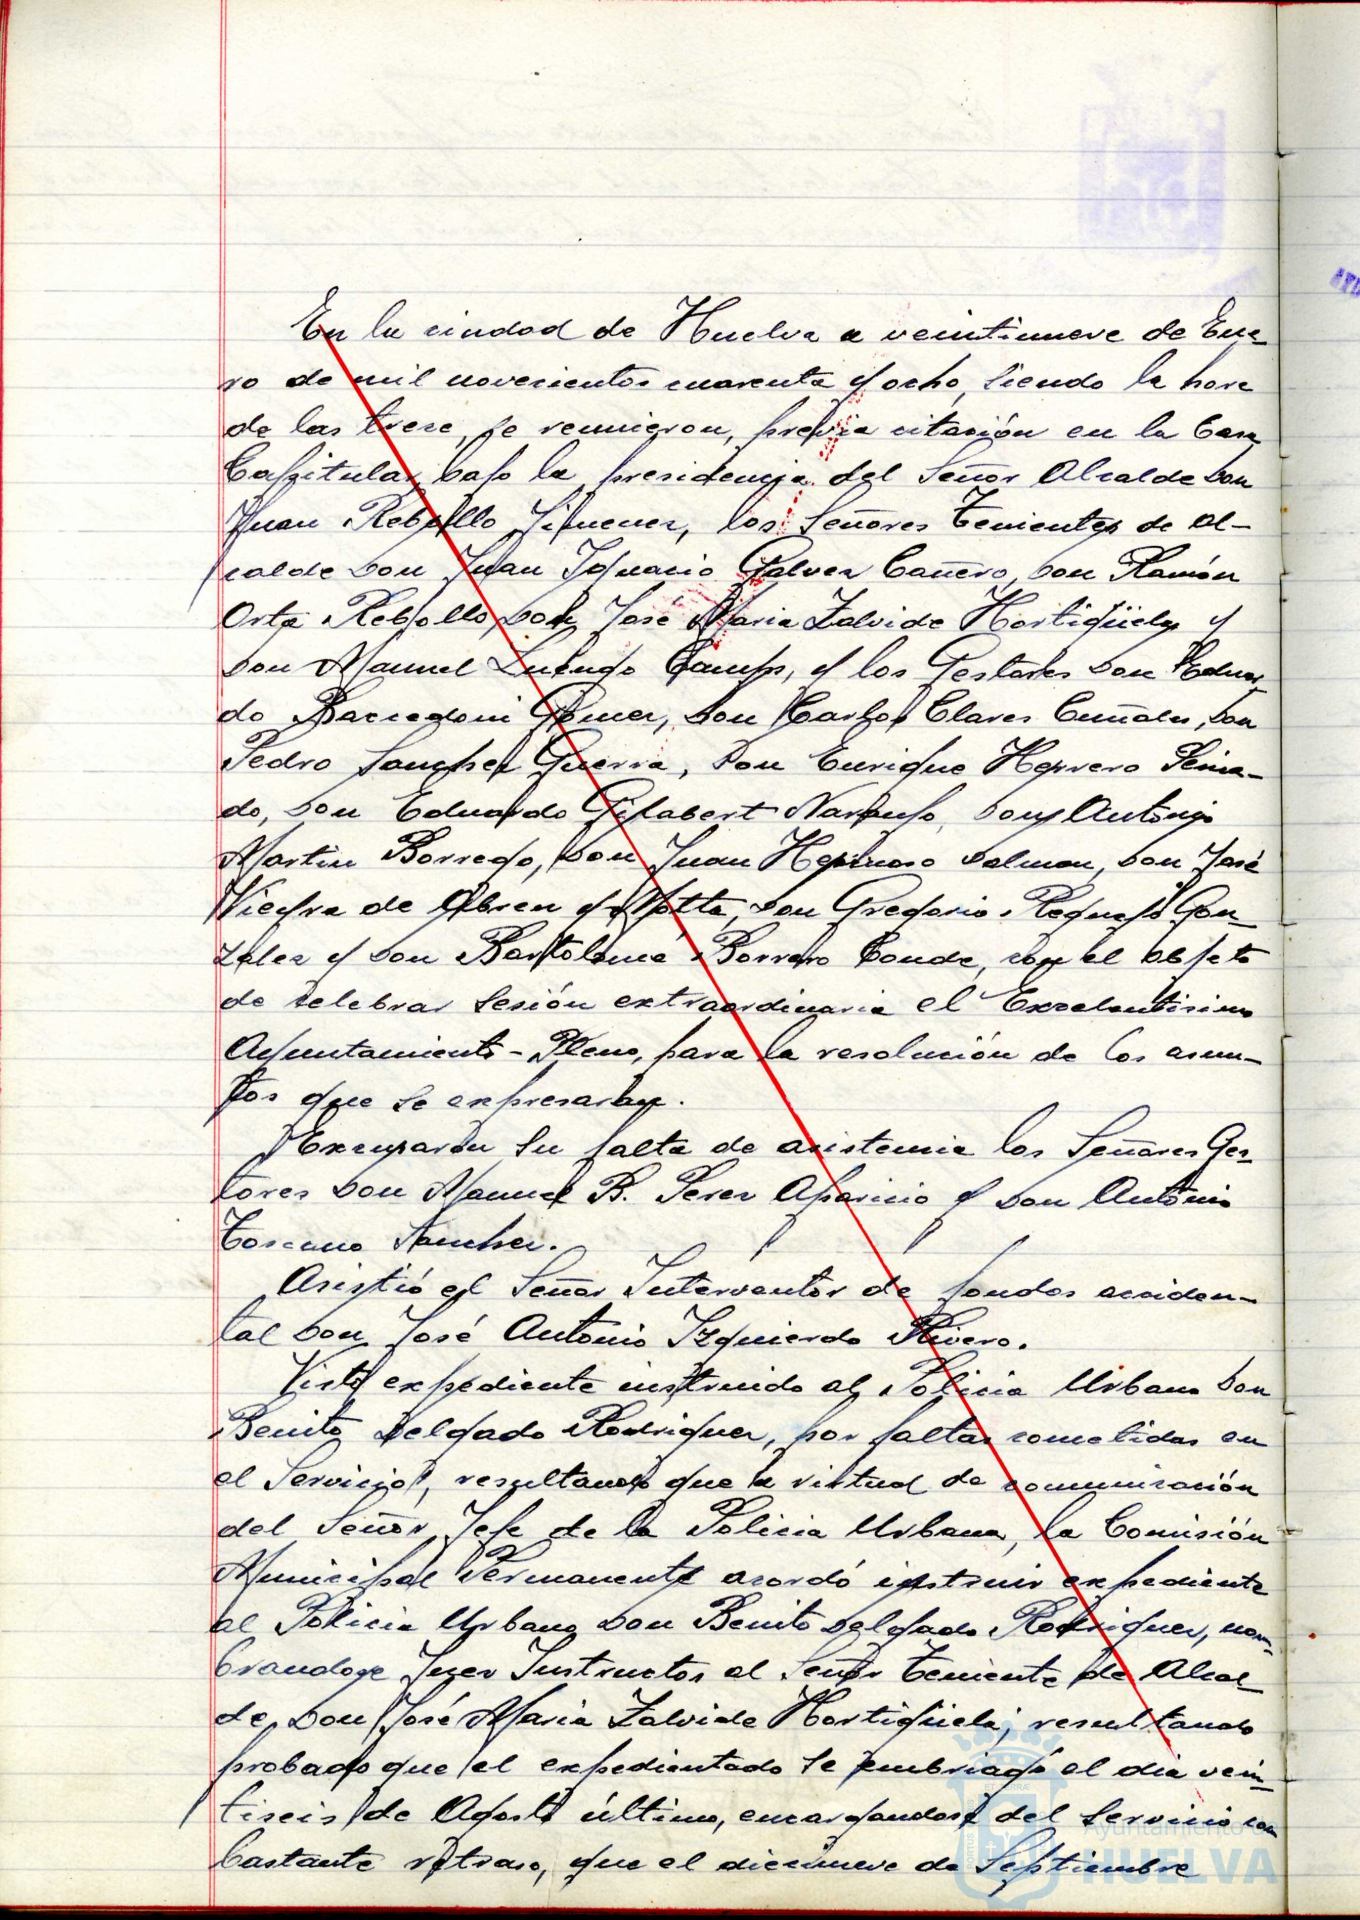 En la ciudad de Huelva a veintinueve de Ene-
ro de mil novecientos cuarenta y ocho, siendo la hora
de las trece, se reunieron, previa citación en la Casa
Capitular, bajo la presidencia del Señor Alcalde Don
Juan Rebollo Jimenez, los Señores Tenientes de Al-
calde Don Juan Ignacio Galvez Cañero, Don Ramón
Orta Rebollo, Don José Maria Zalvide Hortigüela y
Don Manuel Luengo Camps, y los Gestores Don Eduar-
do Baccedoni Gomez, Don Carlos Clares Don
Pedro Sanchez Guerra, Don Enrique Herrero
do, Don Eduardo Gilabert Naranjo, Don Antonio
Martin Borrego, Don Juan Hermoso Dalmau, Don José
Vieyra de Abreu y Motta, Don Gregorio Requejo Gon-
zalez y Don Bartolomé Borrero Conde, con el objeto
de celebrar sesión extraordinaria el Excelentisimo
Ayuntamiento-Pleno, para la resolución de los asun-
tos que se expresaran.
Excusaron su falta de asistencia los Señores Ges-
tores Don Manuel B. Perez Aparicio y Don Antonio
Toscano Sanchez.
Asistió el Señor Interventor de fondos acciden-
tal Don José Antonio Izquierdo Rivero.
Visto expediente instruido al Policia Urbano Don
Benito Delgado Rodriguez, por faltas cometidas en
el Servicio, resultando que a virtud de comunicación
del Señor Jefe de la Policia Urbana, la Comisión
Municipal Permanente acordó instruir expediente
al Policia Urbano Don Benito Delgado Rodriguez, nom-
brandose Juez Instructor al Señor Teniente de Alcal-
de Don José Maria Zalvide Hortigüela; resultando
probado que el expedientado se embriagó el dia vein-
tiseis de Agosto último, encargandose del servicio con
bastante retraso, que el diecinueve de Septiembre
Ayuntamiento de
HUELVA